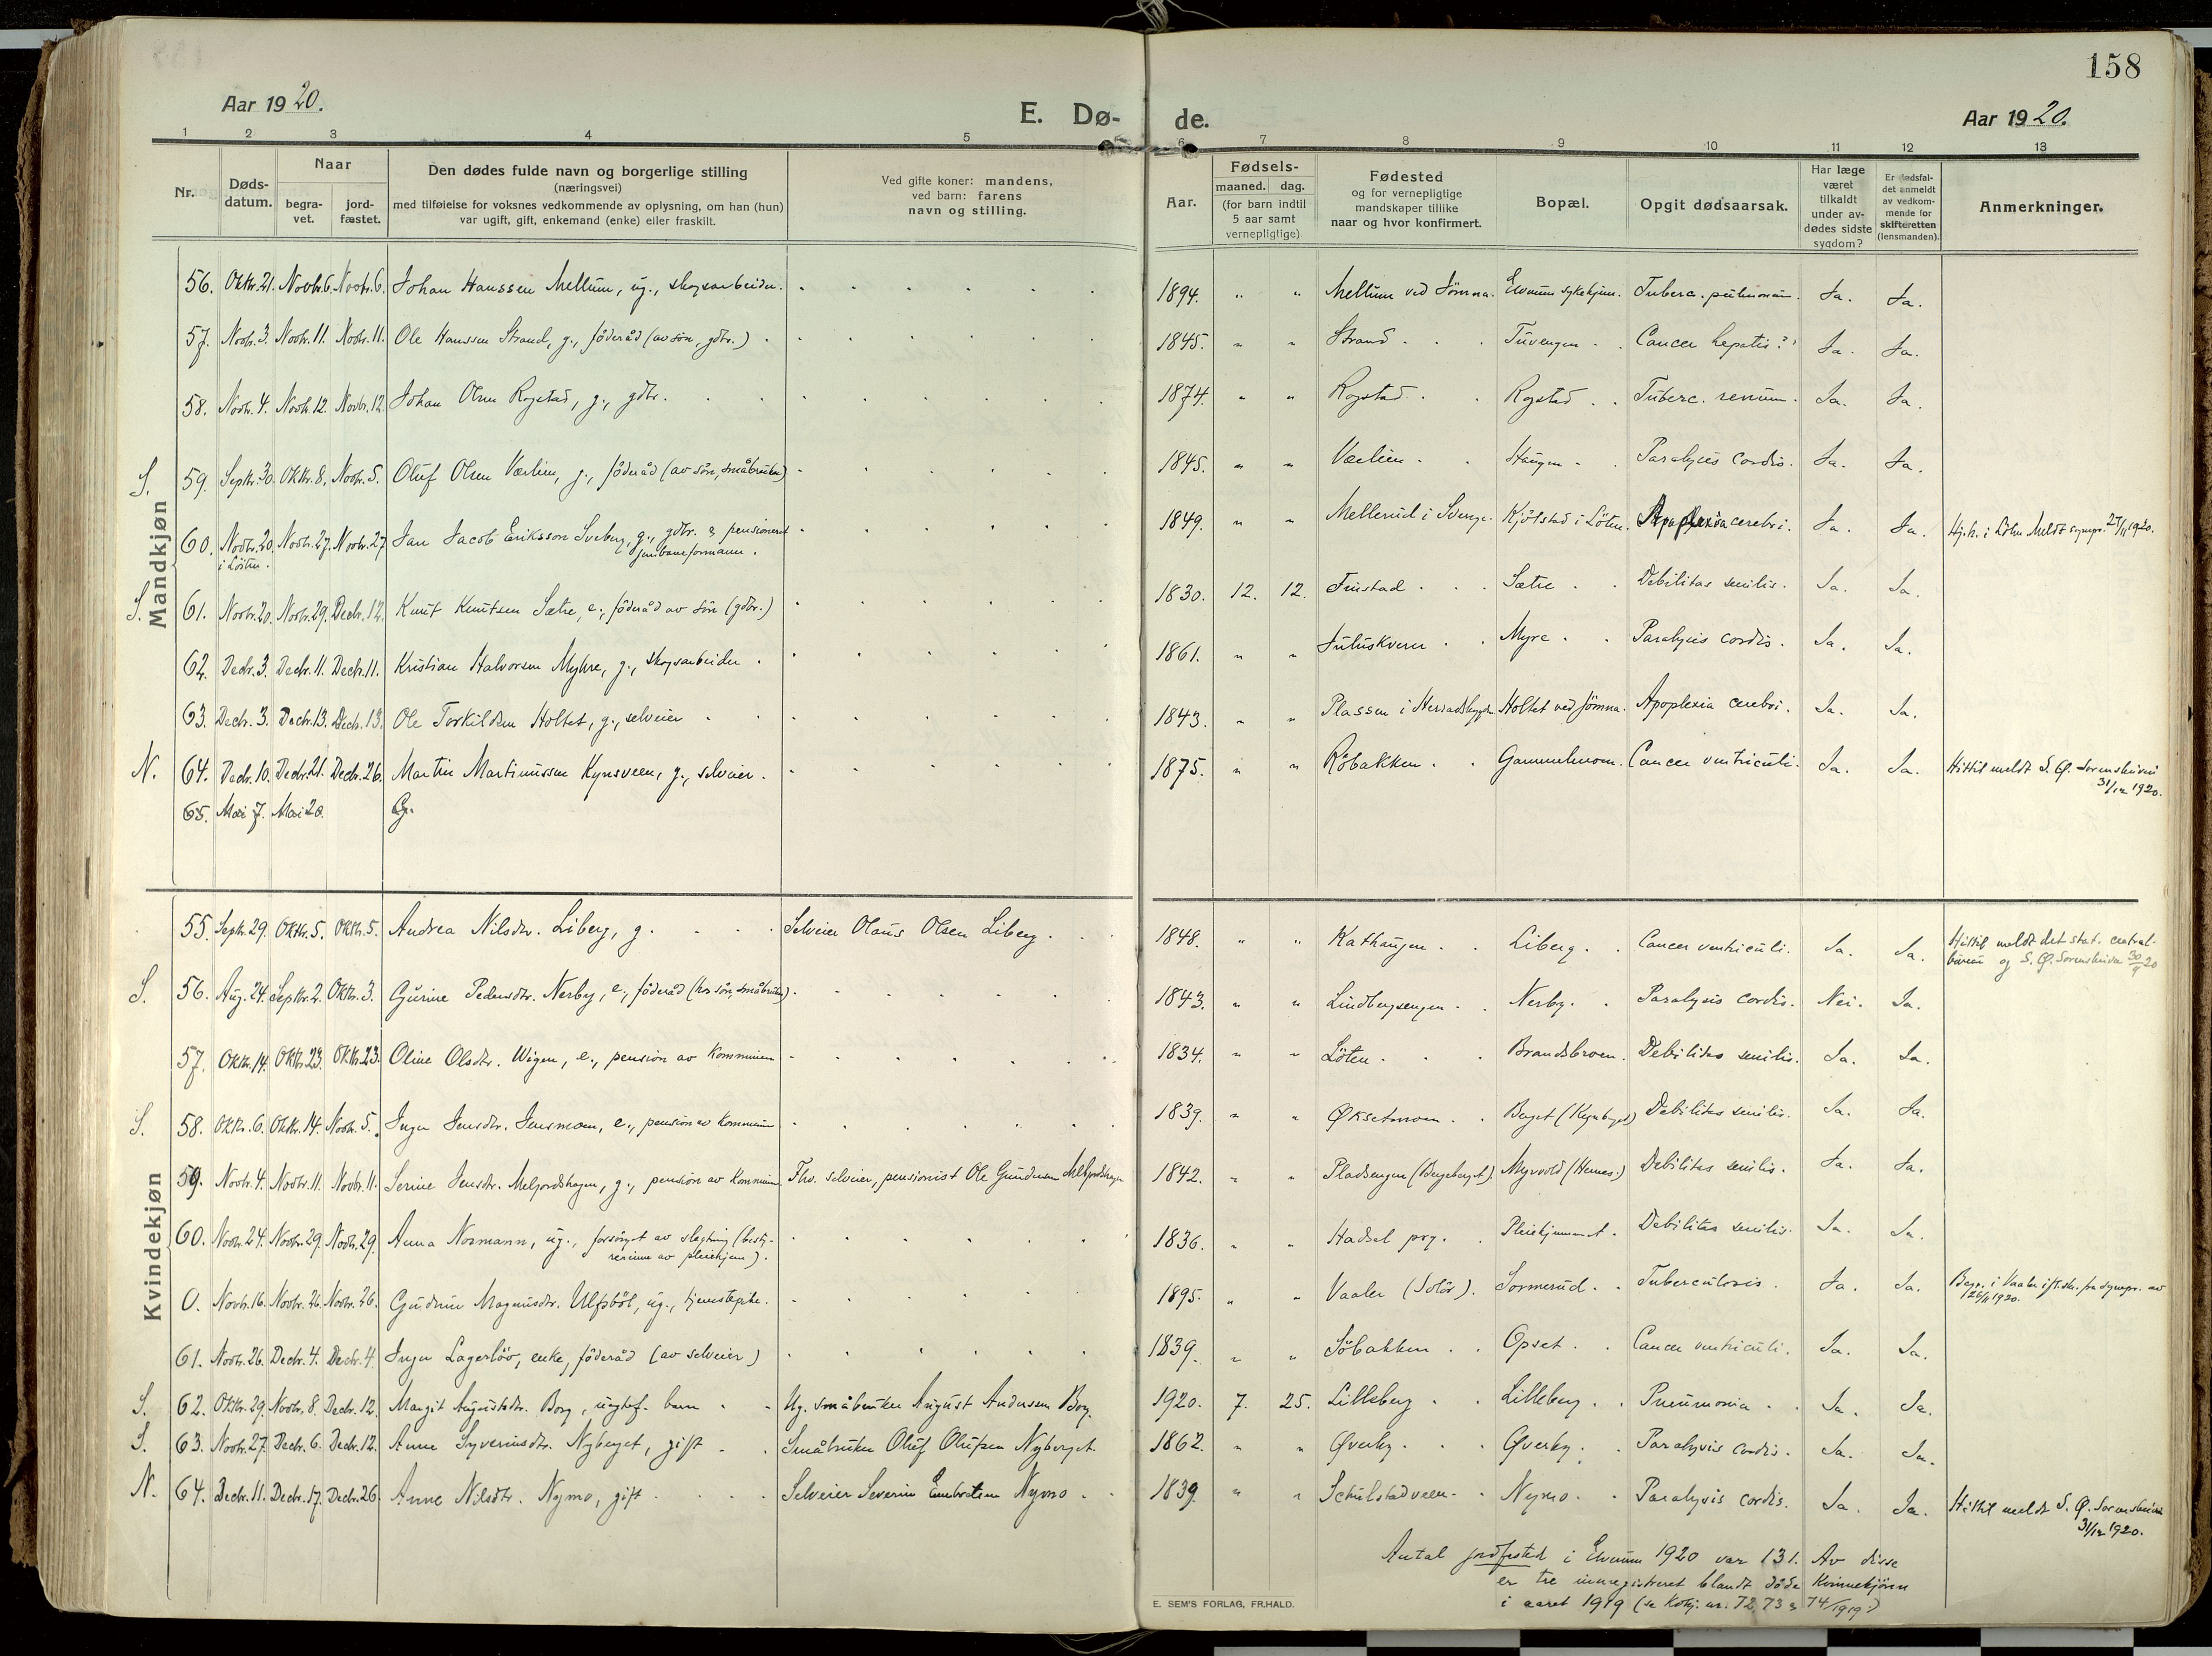 158
Aar 1920.
E. Dø-
de.
Aar 1920.
1 2 3 4 5 6 7 8 9 10 11 12 13
Nr.
Døds-
datum.
Naar
begra-
vet.
jord-
fæstet.
Den dødes fulde navn og borgerlige stilling
(næringsvei)
med tilføielse for voksnes vedkommende av oplysning, om han (hun)
var ugift, gift, enkemand (enke) eller fraskilt.
Ved gifte koner: mandens,
ved barn: farens
navn og stilling.
Aar.
Fødsels-
maaned. dag.
(for barn indtil
5 aar samt
vernepligtige)
Fødested
og for vernepligtige
mandskaper tillike
naar og hvor konfirmert.
Bopæl.
Opgit dødsaarsak.
Har læge
været
tilkaldt
under av-
dødes sidste
sygdom?
Er dødsfal-
det anmeldt
av vedkom-
mende for
skifteretten
(lensmanden).
Anmerkninger.
Mandkjøn
56. Oktbr. 21. Novbr. 6. Novbr. 6. Johan Hanssen Mellum, ug., skogsarbeider. 1894. " " Mellum ved Jömna. Elverum sykehjem. Tuberc. pulmonum. Ja. Ja.
57. Novbr. 3. Novbr. 11. Novbr. 11. Ole Hanssen Strand, g., föderåd (av sön, gdbr.) 1845. " " Strand Tuvengen Cancer hepatis? Ja. Ja.
58. Novbr. 4. Novbr. 12. Novbr. 12. Johan Olsen Rogstad, g., gdbr. 1874. " " Rogstad Rogstad Tuberc. renum. Ja. Ja.
S. 59. Septbr. 30. Oktbr. 8. Novbr. 5. Oluf Olsen Værlien, g., föderåd (av sön, småbruker) 1845. " " Værlien Haugen Paralysis cordis. Ja. Ja.
60. Novbr. 20. Novbr. 27. Novbr. 27. Jan Jacob Eriksson Sveberg, g., gdbr. & pensioneret 1849. " " Mellerud i Sverge. Kjölstad i Löten. Apoplexia cerebri. Ja. Ja. i Löten Meldt sognepr. 27/11 1920.
i Löten. jernbaneformann.
S. 61. Novbr. 20. Novbr. 29. Decbr. 12. Knut Knutsen Sætre, e., föderåd av sön (gdbr.) 1830. 12. 12. Sætre Debilitas senilis. Ja. Ja.
62. Decbr. 3. Decbr. 11. Decbr. 11. Kristian Halvorsen Myhre, g., skogsarbeider. 1861. " " Juluskveren Myre Paralysis cordis. Ja. Ja.
63. Decbr. 3. Decbr. 13. Decbr. 13. Ole Torkildsen Holtet, g., selveier 1843. " " Plassen i Hernadsbygden Holtet ved Jömna. Apoplexia cerebri. Ja. Ja.
N. 64. Decbr. 10. Decbr. 21. Decbr. 26. Martin Martinussen Kynsveen, g., selveier. 1875. " " Röbakken Gammelmoen. Cancer ventriculi. Ja. Ja. Hittil meldt S. Ø. Sorenskriveri
31/12 1920.
65. Mai 7. Mai 20. G.
Kvindekjøn
55. Septbr. 29. Oktbr. 5. Oktbr. 5. Andrea Nilsdtr. Liberg, g. Selveier Olaus Olsen Liberg. 1848. " " Kathaugen Liberg. Cancer ventriculi. Ja. Ja. Hittil meldt det stat. central-
bureau og S. Ø. Sorenskriver 30/9 20
S. 56. Aug. 24. Septbr. 2. Oktbr. 3. Gurine Pedersdtr. Nerby, e., föderåd (hos sön, småbruker) 1843. " " Lindbergsengen Nerby. Paralysis cordis. Nei. Ja.
57. Oktbr. 14. Oktbr. 23. Oktbr. 23. Oline Olsdtr. Wigen, e., pension av kommunen 1834. " " Löten. Brandsbroen. Debilitas senilis. Ja. Ja.
S. 58. Oktbr. 6. Oktbr. 14. Novbr. 5. Inger Jensdtr. Jensmoen, e., pension av kommunen 1839. " " Øksetmoen Berget Debilitas senilis. Ja. Ja.
59. Novbr. 4. Novbr. 11. Novbr. 11. Serine Jensdtr. Melfjordshagen, g., pension av kommunen. Fhv. selveier, pensionist Ole Gundersen Melfjordshagen 1842. " " Pladsengen (Bergeberget). Myrvold (Hernes.) Debilitas senilis. Ja. Ja.
60. Novbr. 24. Novbr. 29. Novbr. 29. Anna Normann, ug., forsörget av slegtning (besty- 1836. " " Hadsel prg. Pleiehjemmet. Debilitas senilis. Ja. Ja.
rerinne av pleiehjem).
0. Novbr. 16. Novbr. 26. Novbr. 26. Gudrun Magnusdtr. Ulfsböl, ug., tjenestepike. 1895. " " Vaaler (Solör). Sormerud. Tuberculosis. Ja. Ja. Begr. i Vaaler fra sognepr. av
26/11 1920.
61. Novbr. 26. Decbr. 4. Decbr. 4. Inger Lagerlöv, enke, föderåd (av selveier) 1839. " " Söbakken Opset. Cancer ventriculi. Ja. Ja.
S. 62. Oktbr. 29. Novbr. 8. Decbr. 12. Margit Augustsdtr. Borg, uegtef. barn Ug. småbruker August Andersen Borg. 1920. 7. 25. Lilleberg Lilleberg. Pneumonia. Ja. Ja.
S. 63. Novbr. 27. Decbr. 6. Decbr. 12. Anne Syverinsdtr. Nyberget, gift Småbruker Oluf Olufsen Nyberget. 1862. " " Øverby. Øverby. Paralysis cordis. Ja. Ja.
N. 64. Decbr. 11. Decbr. 17. Decbr. 26. Anne Nilsdtr. Nymo, gift Selveier Severin Embretsen Nymo. 1839. " " Schulstadveen. Nymo. Paralysis cordis. Ja. Ja. Hittil meldt S. Ø. Sorenskriveri
31/12 1920.
Antal jordfested i Elverum 1920 var 131. Av disse
er tre innregistreret blandt döde Kvinnekjönn
i aaret 1919 (se Kvkj. nr. 72, 73 & 74/1919.)
E. SEM'S FORLAG, FR.HALD.